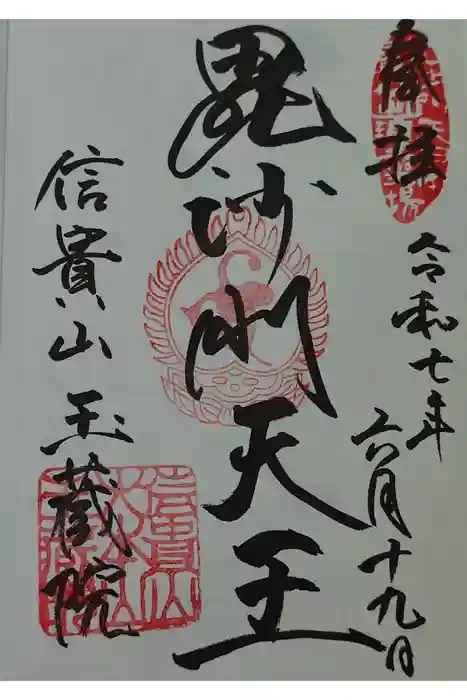 奉拝
令和七年
六月十九日
毘沙門天王
信貴山玉蔵院